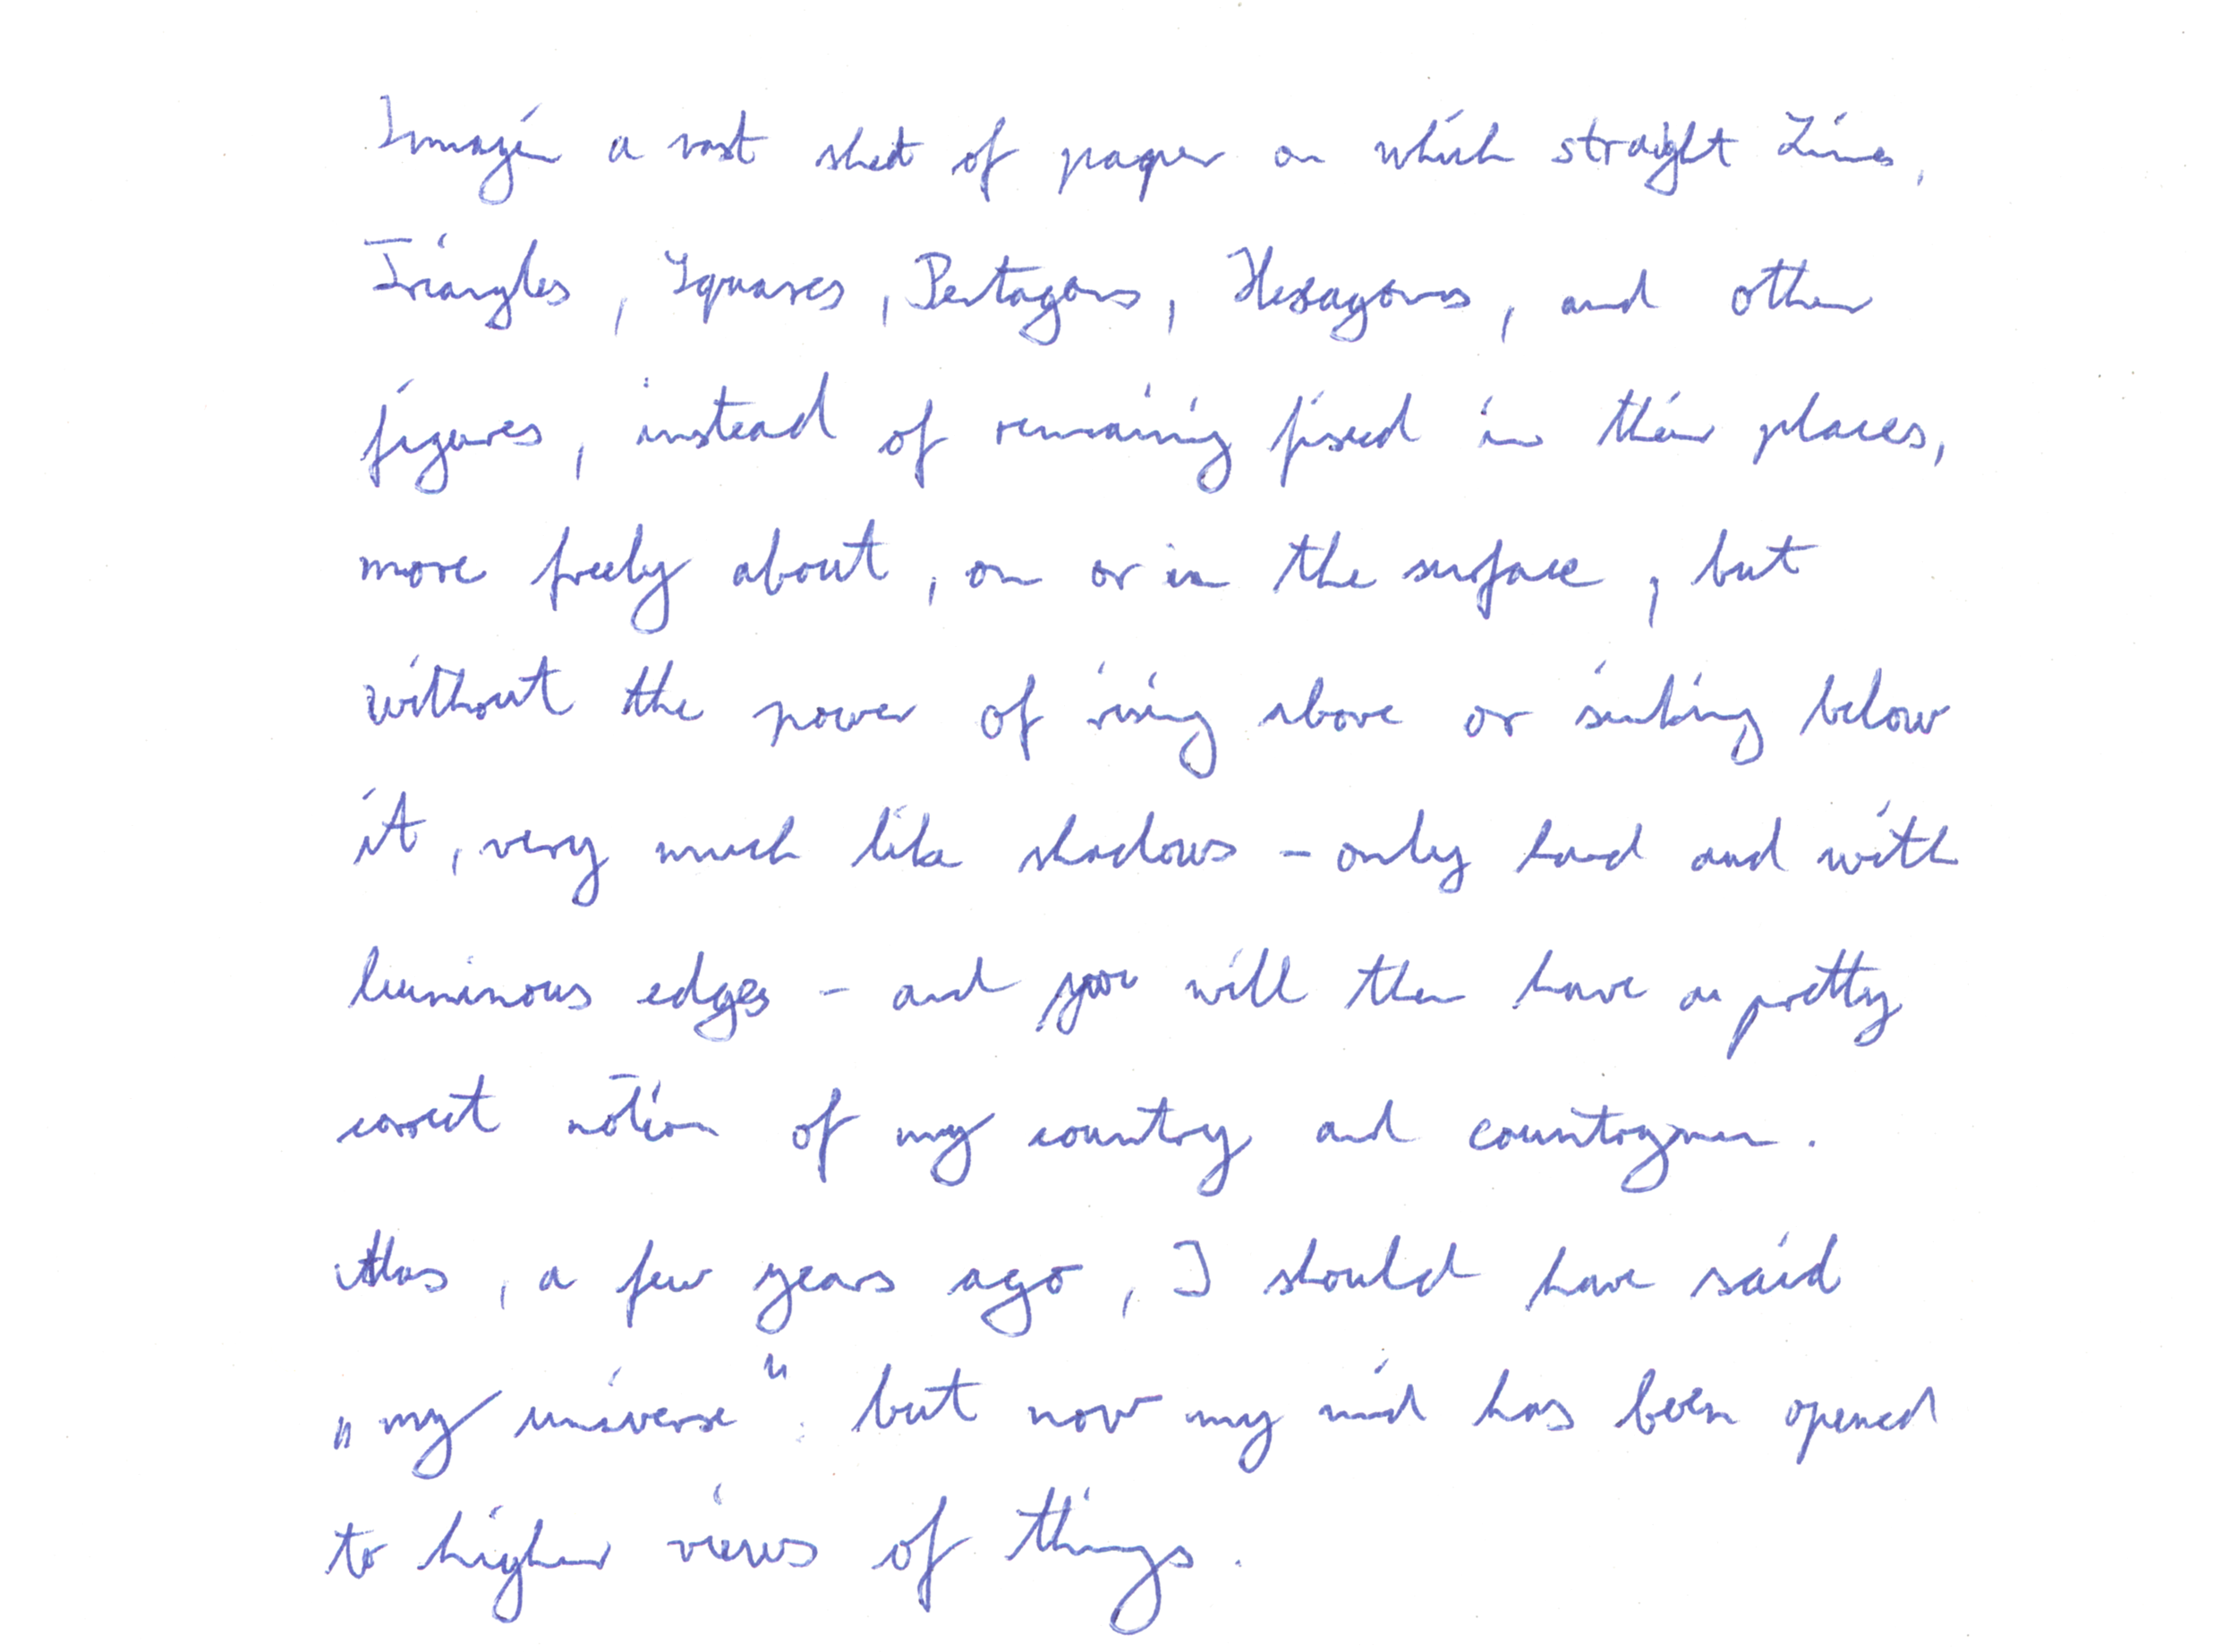 Imagin a vast sheet of paper on which straight Lines,
Triangles, Squares, Pentagons, Hexagons, and other
figures, instead of remaining fixed in their places,
more freely about, on or in the surface, but
without the power of rising above or sinking below
it, very much like shadows - only hard and with
luminous edges - and you will then have a pretty
correct notion of my country and countrymen.
, a few years ago, I should have said
„my universe“: but now my mind has been opened
to higher views of things.